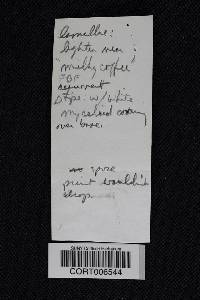 Lamellae:
lighter near
"milky coffee"
FBF
decurrent
Stipe: w/ white
mycelioid coating
over base.
no spore
print wouldn't
drop
CORT006544